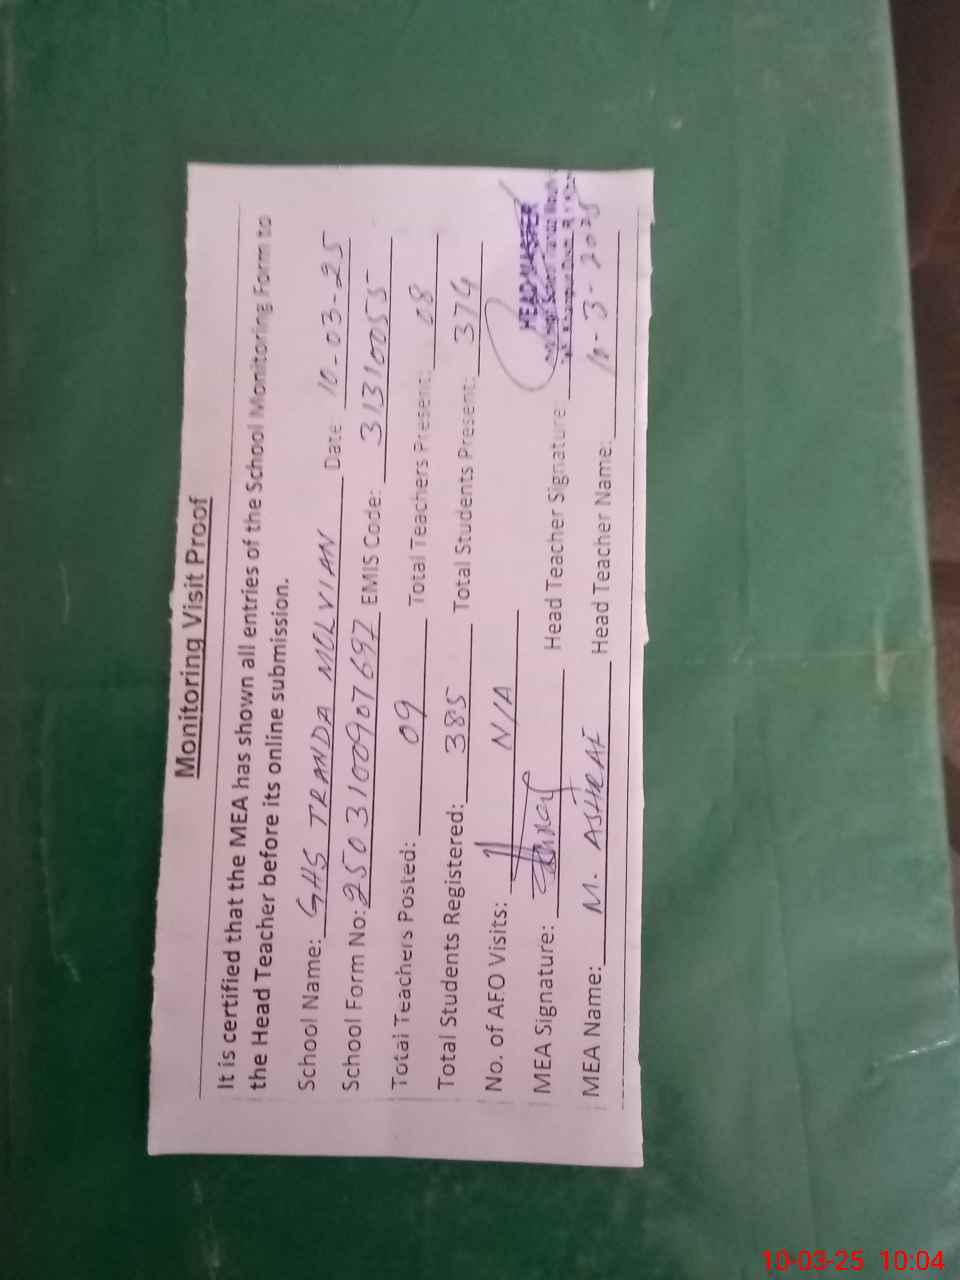 Monitoring Visit Proof
It is certified that the MEA has shown all entries of the School Monitoring Form to
the Head Teacher before its online submission.
School Name: GHS TRANDA MOLVIAN Date: 10-03-25
School Form No: 250310090769 EMIS Code: 31310055
Total Teachers Posted: 09 Total Teachers Present: 08
Total Students Registered: 385 Total Students Present: 374
No. of AEO Visits: N/A
MEA Signature: Head Teacher Signature:
HEAD MASTER
MEA Name: M. ASHRAF Head Teacher Name: 10-3-2025
10-03-25 10:04